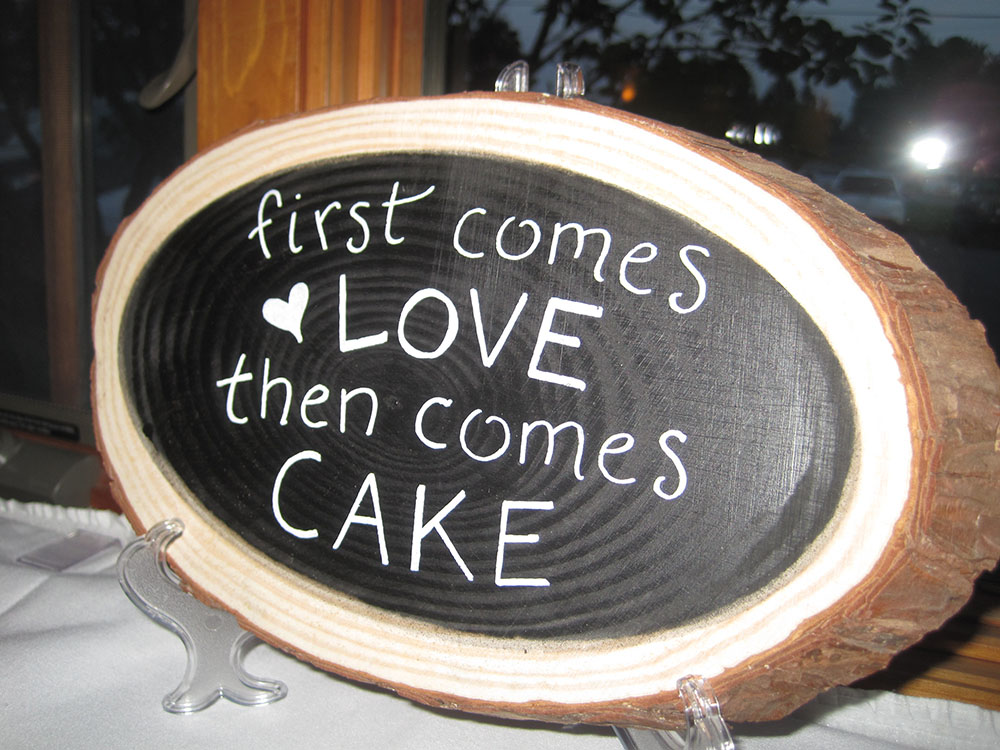 first comes
LOVE
then comes
CAKE